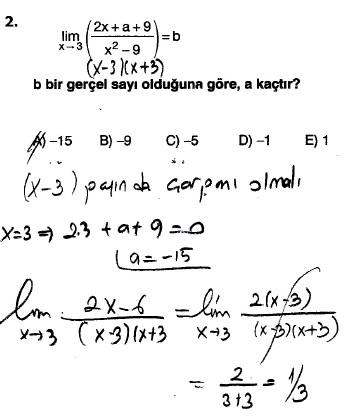 2.
lim x→3 ( (2x + a + 9) / (x² – 9) ) = b
(x-3)(x+3)
b bir gerçel sayı olduğuna göre, a kaçtır?
A) –15 B) –9 C) –5 D) –1 E) 1
(x-3) payında çarpanı olmalı
x=3 ⇒ 2.3 + a + 9 = 0
a = -15
lim x→3 (2x-6) / ((x-3)(x+3) = lim x→3 2(x-3) / ((x-3)(x+3))
= 2 / (3+3) = 1/3